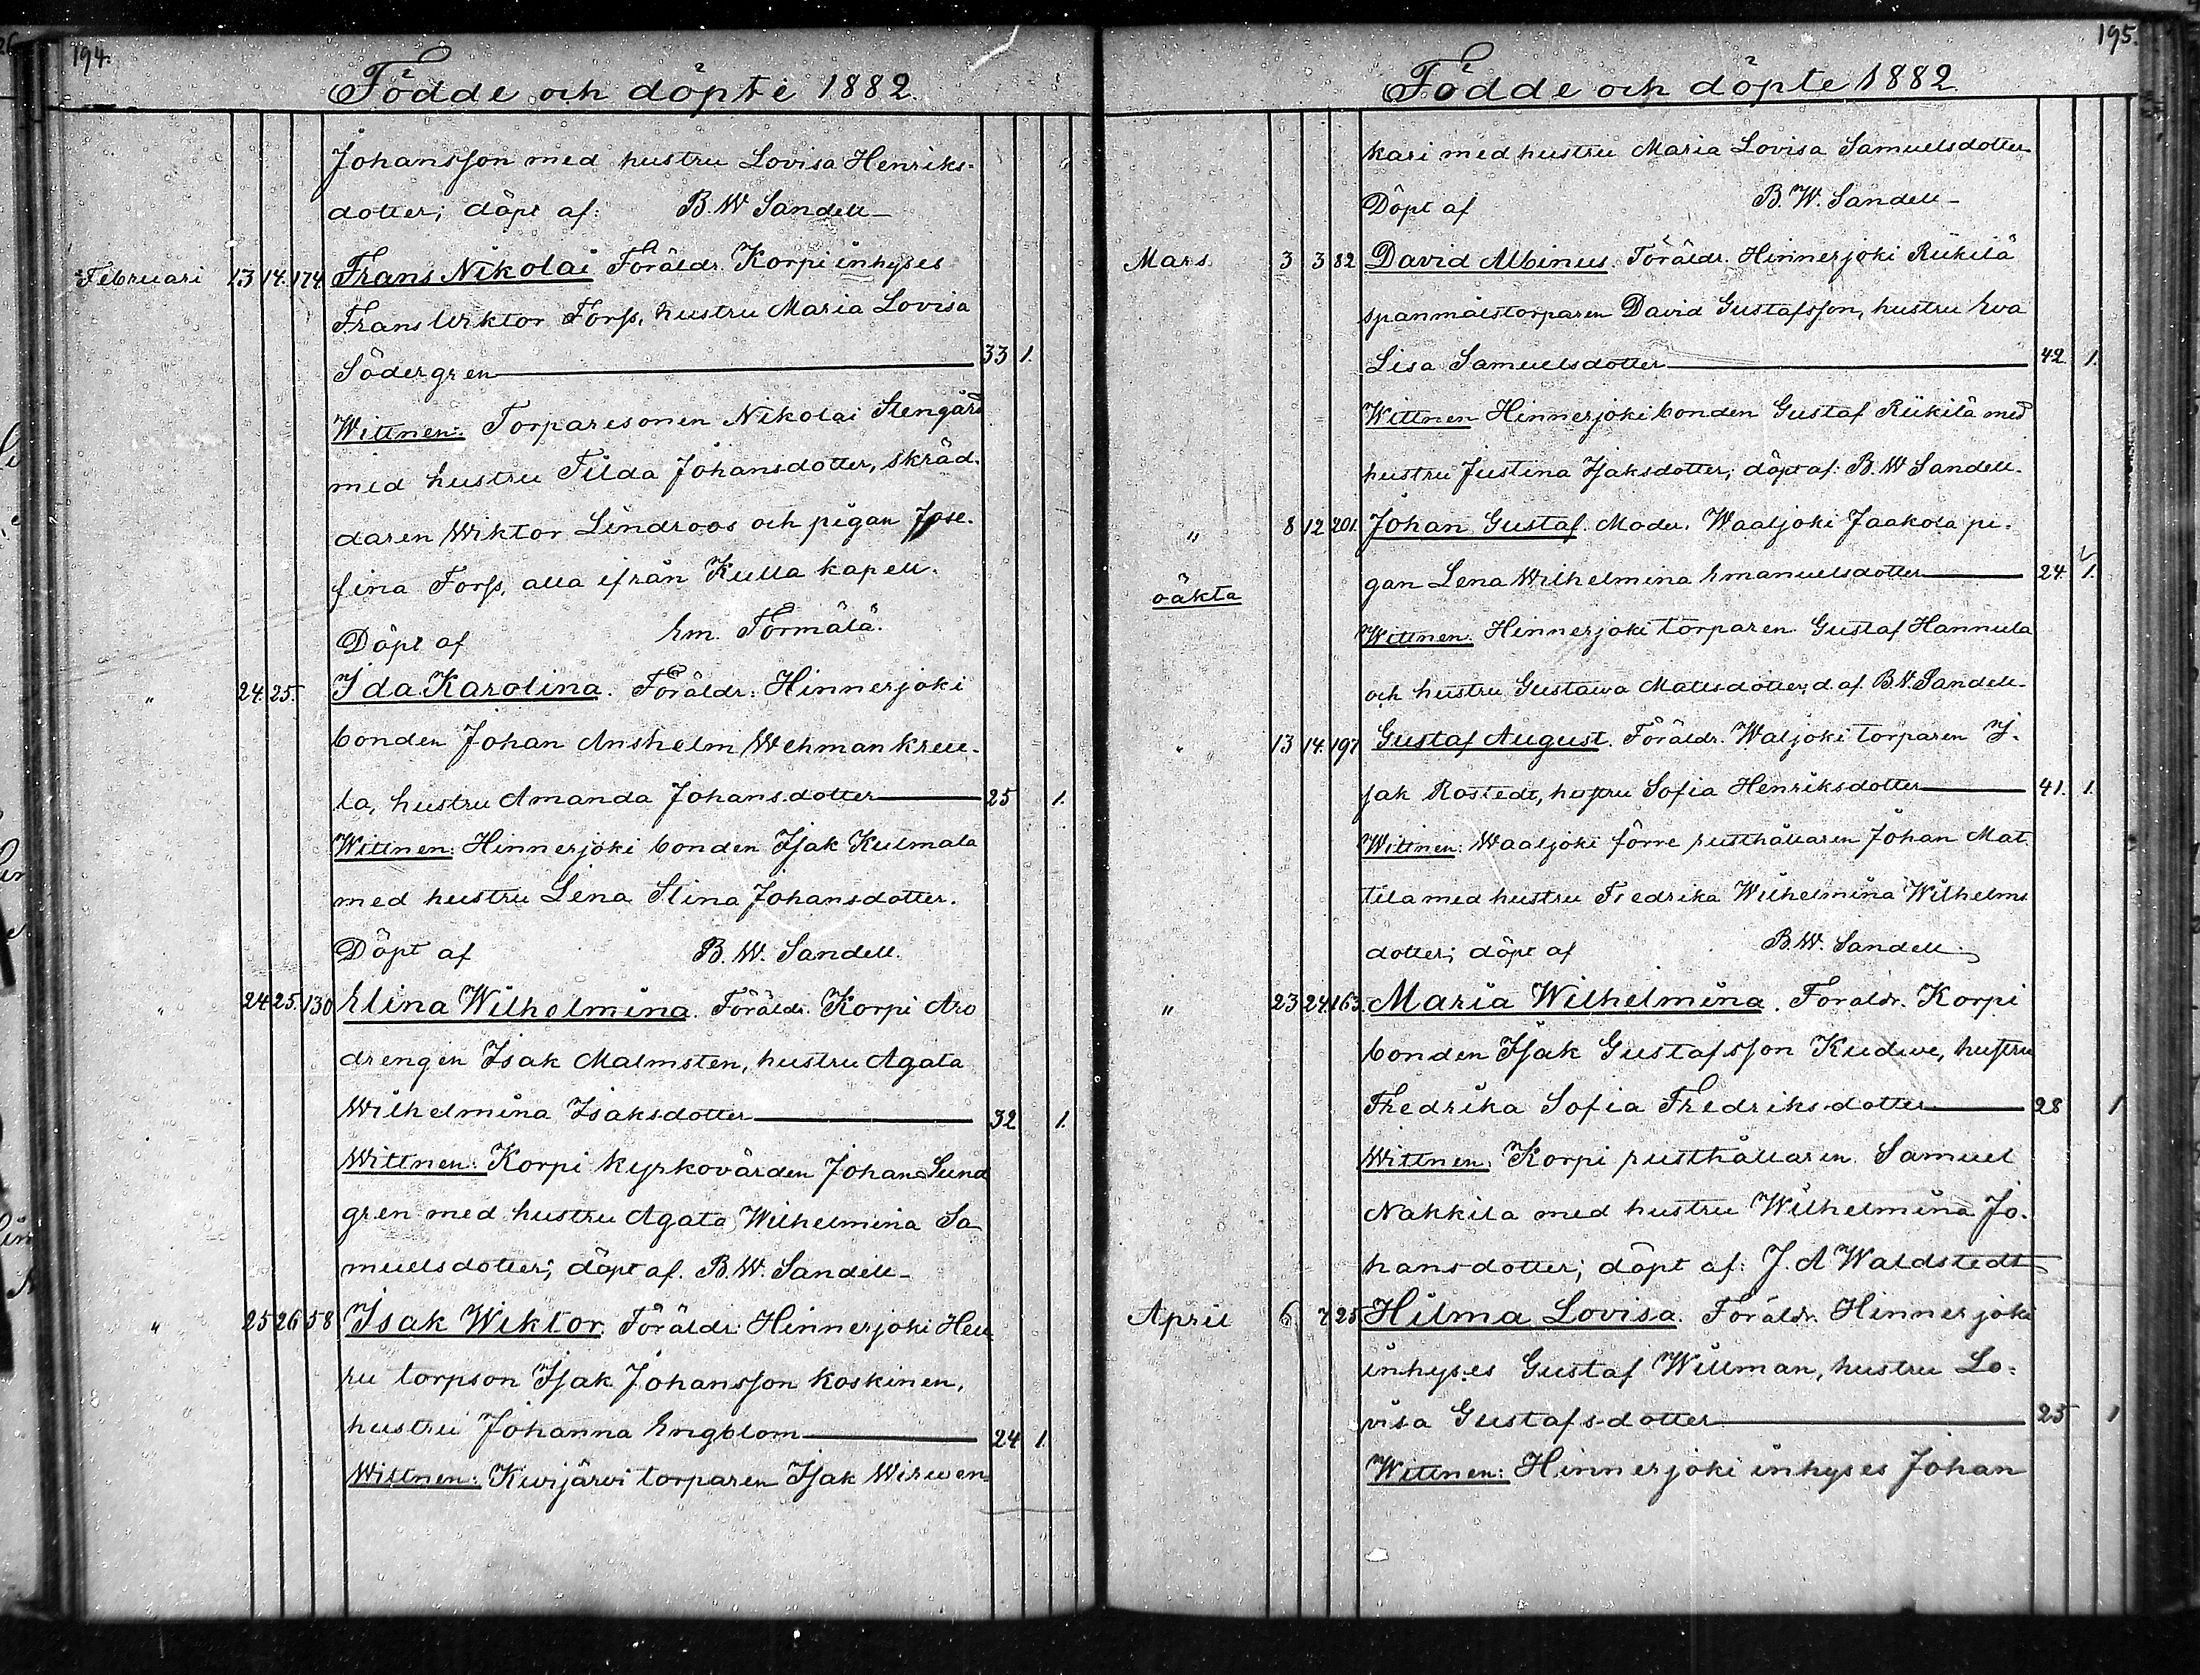 194.
Födde och döpte 1882.
Johansson med hustru Lovisa Henriks-
dotter; döpt af: B. W Sandell
Februari 13 14. 174 Frans Nikolai Föräldr. Korpi inhyses
Frans Wiktor Forss, hustru Maria Lovisa
Södergren 33 1.
Wittnen: Torparesonen Nikolai Stengård
med hustru Tilda Johansdotter, skräd-
daren Wiktor Lindroos och pigan Jose-
fina Forss, alla ifrån Kulla kapell.
Döpt af Em. Törmälä.
" 24. 25. Ida Karolina. Föräldr: Hinnerjoki
bonden Johan Anshelm Wehman kreu-
la, hustru Amanda Johansdotter 25 1.
Wittnen: Hinnerjoki bonden Isak Kulmala
med hustru Lena Stina Johansdotter.
Döpt af B. W. Sandell.
" 24 25. 130 Elina Wilhelmina. Föräldr. Korpi Aro
drengen Isak Malmsten, hustru Agata
Wilhelmina Isaksdotter 32 1.
Wittnen: Korpi kyrkovärden Johan Sund
gren med hustru Agata Wilhelmina Sa
muelsdotter; döpt af. B. W. Sandell
" 25 26 58 Isak Wiktor. Föräldr: Hinnerjoki Heu
ru torpson Isak Johansson Koskinen,
hustru Johanna Engblom 24 1
Wittnen: Kivijärvi torparen Isak Wirwen
195.
Födde och döpte 1882
kari med hustru Maria Lovisa Samuelsdotter
Döpt af B. W. Sandell
Mars 3 3 82 David Albinus. Föräldr. Hinnerjoki Riikilä
spanmålstorparen David Gustafsson, hustru Eva
Lisa Samuelsdotter 42 1.
Wittnen Hinnerjoki bonden Gustaf Riikilä med
hustru Justina Isaksdotter; döpt af: B. W Sandell.
" 8 12 201. Johan Gustaf. Moder. Waaljoki Jaakola pi-
oäkta gan Lena Wilhelmina Emanuelsdotter 24 1.
Wittnen: Hinnerjoki torparen Gustaf Hannula
och hustru Gustava Matsdotter; d. af. B. W. Sandell.
" 13 14. 197 Gustaf August. Föräldr. Waljoki torparen I-
sak Rostedt, hustru Sofia Henriksdotter 41. 1.
Wittnen: Waaljoki förre rusthållaren Johan Mat
tila med hustru Fredrika Wilhelmina Wilhelms
dotter; döpt af B. W. Sandell
" 23 24. 163. Maria Wilhelmina. Föräldr. Korpi
bonden Isak Gustafsson Kudwe, hustru
Fredrika Sofia Fredriksdotter 28 1
Wittnen: Korpi rusthållaren Samuel
Nakkila med hustru Wilhelmina Jo-
hansdotter; döpt af: J. A Waldstedt
April 6 7 25 Hilma Lovisa. Föräldr. Hinnerjoki
inhyses Gustaf Willman, hustru Lo-
visa Gustafsdotter 25 1
Wittnen: Hinnerjoki inhyses Johan